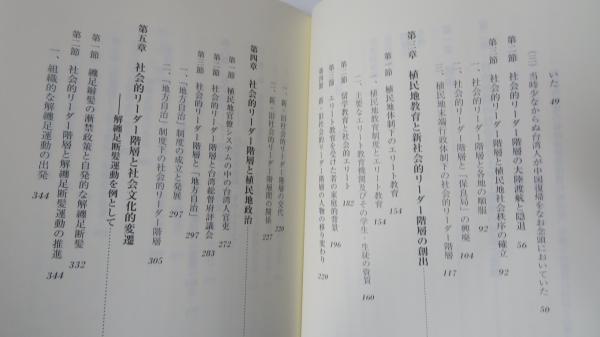 いた 49
(三) 当時少なからぬ台湾人が中国復帰をなお念頭においていた 50
第二節 社会的リーダー階層の大陸渡航と隠退 56
第三節 社会的リーダー階層と植民地社会秩序の確立 92
一、社会的リーダー階層と各地の順服 92
二、社会的リーダー階層と「保良局」の興廃 104
三、植民地末端行政体制下の社会的リーダー階層 117
第三章 植民地教育と新社会的リーダー階層の創出
第一節 植民地体制下のエリート教育 154
一、植民地教育制度とエリート教育 154
二、主要なエリート教育機関及びその学生・生徒の資質 160
第二節 留学教育と社会的エリート 182
第三節 エリート教育を受けた者の家庭的背景 196
第四節 新・旧社会的リーダー階層の人物の移り変わり 220
一、新・旧社会的リーダー階層の交代 220
二、新・旧社会的リーダー階層間の関係 227
第四章 社会的リーダー階層と植民地政治
第一節 植民地官僚システムの中の台湾人官吏 272
第二節 社会的リーダー階層と台湾総督府評議会 283
第三節 社会的リーダー階層と「地方自治」 297
一、「地方自治」制度の成立と発展 297
二、「地方自治」制度下の社会的リーダー階層 305
第五章 社会的リーダー階層と社会文化的変遷
——解纏足断髪運動を例として——
第一節 纏足辮髪の漸禁政策と自発的な解纏足断髪 332
第二節 社会的リーダー階層と解纏足断髪運動の推進 344
一、組織的な解纏足運動の出発 344